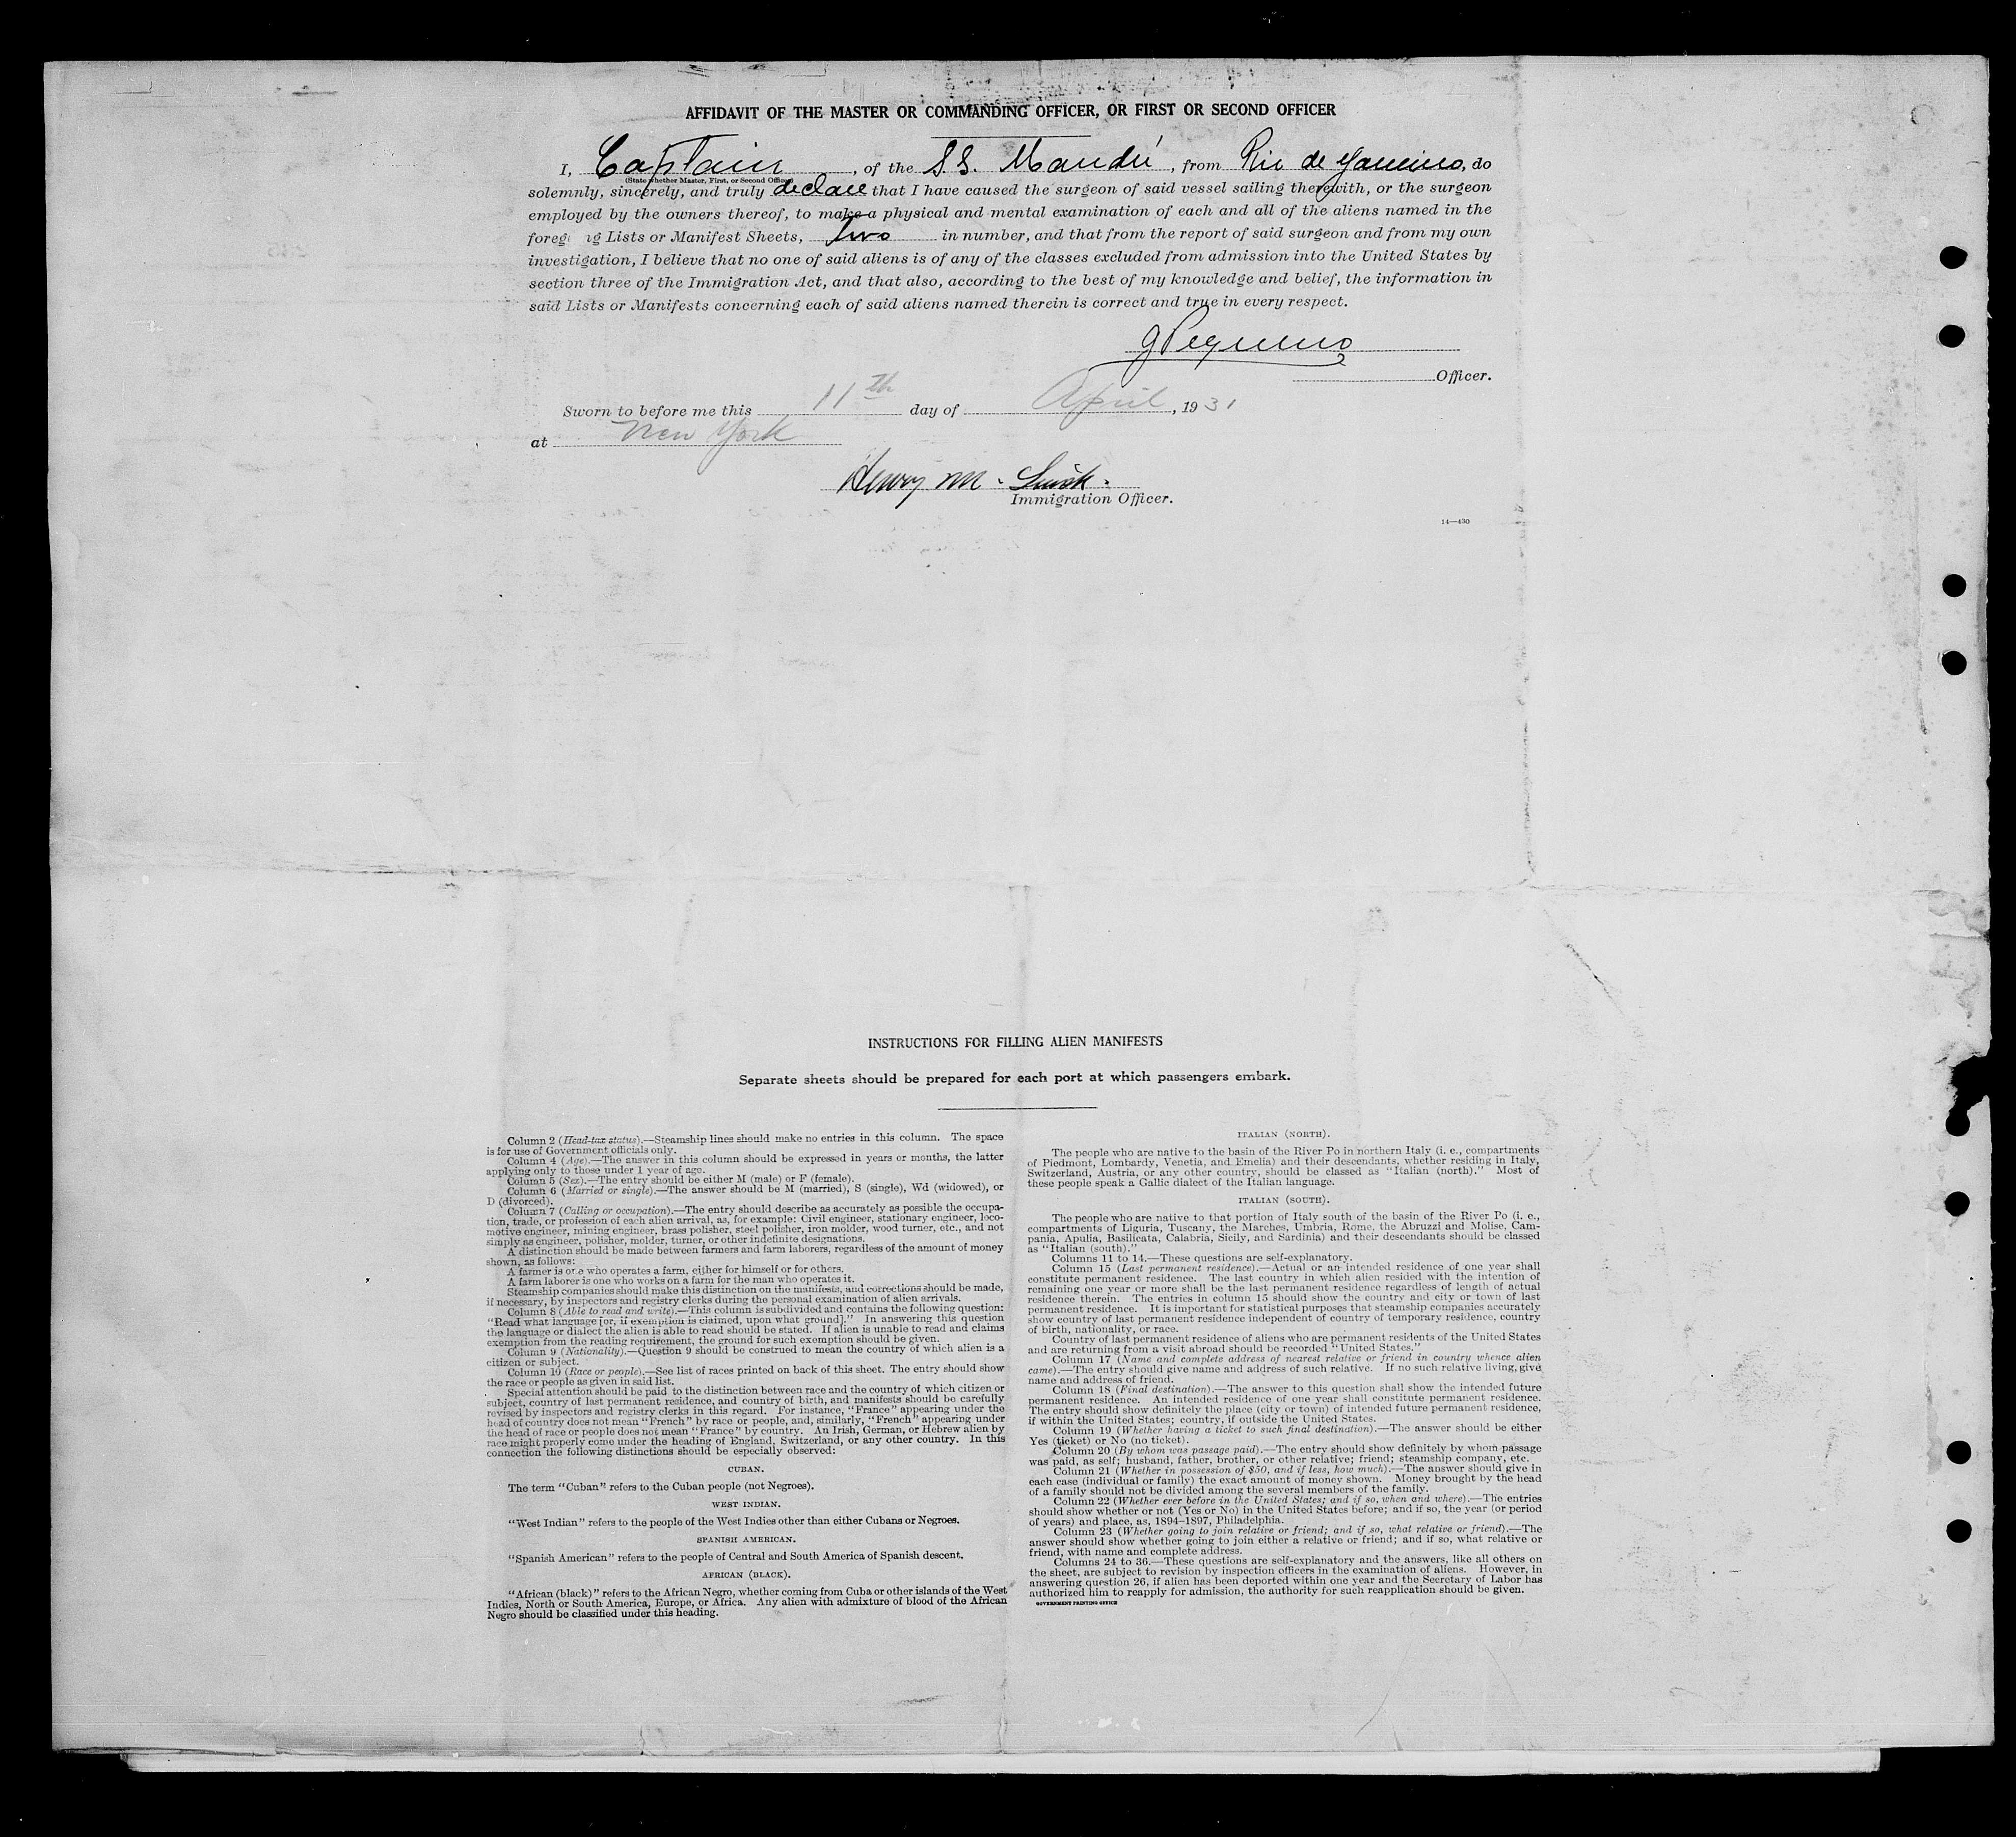 AFFIDAVIT OF THE MASTER OR COMMANDING OFFICER, OR FIRST OR SECOND OFFICER
I, Captain, of the S.S. Mandú, from Rio de Janeiro, do
(State whether Master, First, or Second Officer)
solemnly, sincerely, and truly declare that I have caused the surgeon of said vessel sailing therewith, or the surgeon
employed by the owners thereof, to make a physical and mental examination of each and all of the aliens named in the
foreg ng Lists or Manifest Sheets, two in number, and that from the report of said surgeon and from my own
investigation, I believe that no one of said aliens is of any of the classes excluded from admission into the United States by
section three of the Immigration Act, and that also, according to the best of my knowledge and belief, the information in
said Lists or Manifests concerning each of said aliens named therein is correct and true in every respect.
Officer.
Sworn to before me this 11th day of April, 1931
at New York
Henry M.
Immigration Officer.
14—430
INSTRUCTIONS FOR FILLING ALIEN MANIFESTS
Separate sheets should be prepared for each port at which passengers embark.
Column 2 (Head-tax status).—Steamship lines should make no entries in this column. The space
is for use of Government officials only.
Column 4 (Age).—The answer in this column should be expressed in years or months, the latter
applying only to those under 1 year of age.
Column 5 (Sex).—The entry should be either M (male) or F (female).
Column 6 (Married or single).—The answer should be M (married), S (single), Wd (widowed), or
D (divorced).
Column 7 (Calling or occupation).—The entry should describe as accurately as possible the occupa-
tion, trade, or profession of each alien arrival, as, for example: Civil engineer, stationary engineer, loco-
motive engineer, mining engineer, brass polisher, steel polisher, iron molder, wood turner, etc., and not
simply as engineer, polisher, molder, turner, or other indefinite designations.
A distinction should be made between farmers and farm laborers, regardless of the amount of money
shown, as follows:
A farmer is one who operates a farm, either for himself or for others.
A farm laborer is one who works on a farm for the man who operates it.
Steamship companies should make this distinction on the manifests, and corrections should be made,
if necessary, by inspectors and registry clerks during the personal examination of alien arrivals.
Column 8 (Able to read and write).—This column is subdivided and contains the following question:
"Read what language [or, if exemption is claimed, upon what ground]." In answering this question
the language or dialect the alien is able to read should be stated. If alien is unable to read and claims
exemption from the reading requirement, the ground for such exemption should be given.
Column 9 (Nationality).—Question 9 should be construed to mean the country of which alien is a
citizen or subject.
Column 10 (Race or people).—See list of races printed on back of this sheet. The entry should show
the race or people as given in said list.
Special attention should be paid to the distinction between race and the country of which citizen or
subject, country of last permanent residence, and country of birth, and manifests should be carefully
revised by inspectors and registry clerks in this regard. For instance, "France" appearing under the
head of country does not mean "French" by race or people, and, similarly, "French" appearing under
the head of race or people does not mean "France" by country. An Irish, German, or Hebrew alien by
race might properly come under the heading of England, Switzerland, or any other country. In this
connection the following distinctions should be especially observed:
CUBAN.
The term "Cuban" refers to the Cuban people (not Negroes).
WEST INDIAN.
"West Indian" refers to the people of the West Indies other than either Cubans or Negroes.
SPANISH AMERICAN.
"Spanish American" refers to the people of Central and South America of Spanish descent.
AFRICAN (BLACK).
"African (black)" refers to the African Negro, whether coming from Cuba or other islands of the West
Indies, North or South America, Europe, or Africa. Any alien with admixture of blood of the African
Negro should be classified under this heading.
ITALIAN (NORTH).
The people who are native to the basin of the River Po in northern Italy (i. e., compartments
of Piedmont, Lombardy, Venetia, and Emelia) and their descendants, whether residing in Italy,
Switzerland, Austria, or any other country, should be classed as "Italian (north)." Most of
these people speak a Gallic dialect of the Italian language.
ITALIAN (SOUTH).
The people who are native to that portion of Italy south of the basin of the River Po (i. e.,
compartments of Liguria, Tuscany, the Marches, Umbria, Rome, the Abruzzi and Molise, Cam-
pania, Apulia, Basilicata, Calabria, Sicily, and Sardinia) and their descendants should be classed
as "Italian (south)."
Columns 11 to 14.—These questions are self-explanatory.
Column 15 (Last permanent residence).—Actual or an intended residence of one year shall
constitute permanent residence. The last country in which alien resided with the intention of
remaining one year or more shall be the last permanent residence regardless of length of actual
residence therein. The entries in column 15 should show the country and city or town of last
permanent residence. It is important for statistical purposes that steamship companies accurately
show country of last permanent residence independent of country of temporary residence, country
of birth, nationality, or race.
Country of last permanent residence of aliens who are permanent residents of the United States
and are returning from a visit abroad should be recorded "United States."
Column 17 (Name and complete address of nearest relative or friend in country whence alien
came).—The entry should give name and address of such relative. If no such relative living, give
name and address of friend.
Column 18 (Final destination).—The answer to this question shall show the intended future
permanent residence. An intended residence of one year shall constitute permanent residence.
The entry should show definitely the place (city or town) of intended future permanent residence,
if within the United States; country, if outside the United States.
Column 19 (Whether having a ticket to such final destination).—The answer should be either
Yes (ticket) or No (no ticket).
Column 20 (By whom was passage paid).—The entry should show definitely by whom passage
was paid, as self; husband, father, brother, or other relative; friend; steamship company, etc.
Column 21 (Whether in possession of $50, and if less, how much).—The answer should give in
each case (individual or family) the exact amount of money shown. Money brought by the head
of a family should not be divided among the several members of the family.
Column 22 (Whether ever before in the United States; and if so, when and where).—The entries
should show whether or not (Yes or No) in the United States before; and if so, the year (or period
of years) and place, as, 1894–1897, Philadelphia.
Column 23 (Whether going to join relative or friend; and if so, what relative or friend).—The
answer should show whether going to join either a relative or friend; and if so, what relative or
friend, with name and complete address.
Columns 24 to 36.—These questions are self-explanatory and the answers, like all others on
the sheet, are subject to revision by inspection officers in the examination of aliens. However, in
answering question 26, if alien has been deported within one year and the Secretary of Labor has
authorized him to reapply for admission, the authority for such reapplication should be given.
GOVERNMENT PRINTING OFFICE